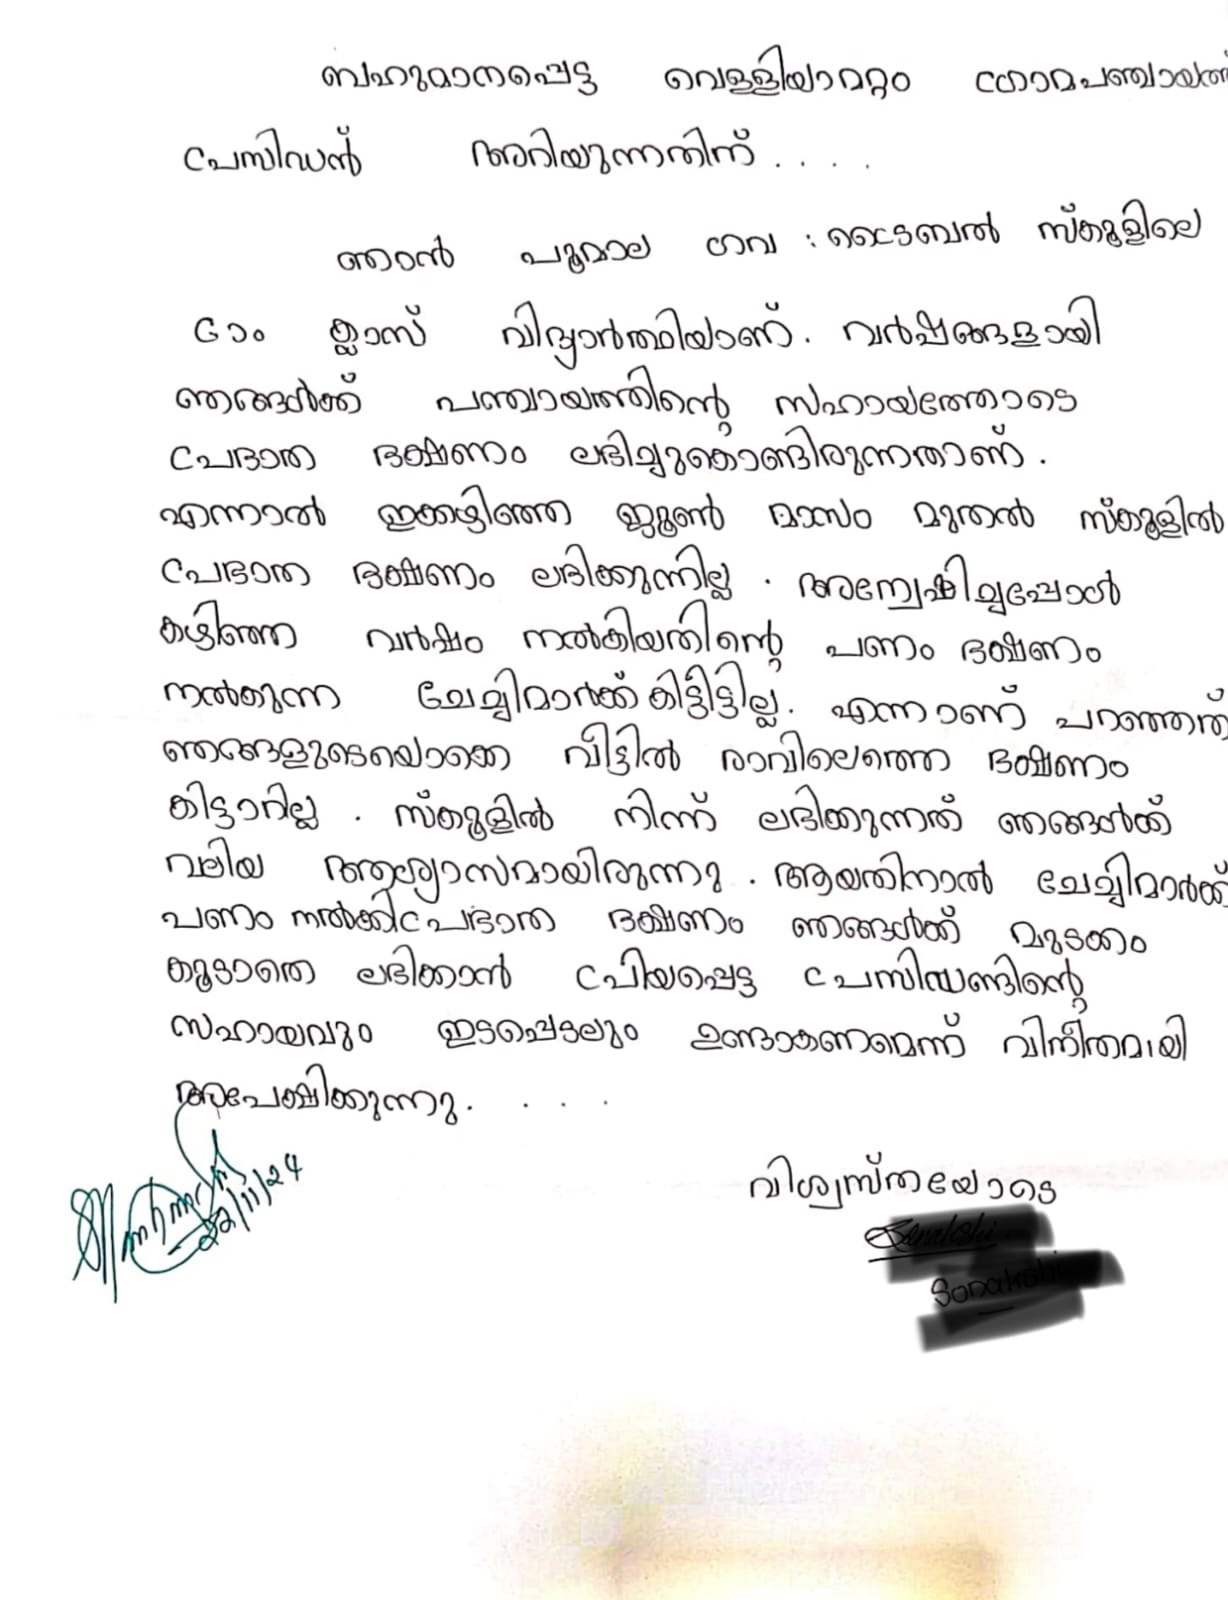 ബഹുമാനപ്പെട്ട വെള്ളിയാമറ്റം ഗ്രാമപഞ്ചായത്ത്
പ്രസിഡന്റ് അറിയുന്നതിന് . . . .
ഞാൻ പൂമാല ഗവ : ട്രൈബൽ സ്കൂളിലെ
ക്ലാസ് വിദ്യാർത്ഥിയാണ്. വർഷങ്ങളായി
ഞങ്ങൾക്ക് പഞ്ചായത്തിന്റെ സഹായത്തോടെ
പ്രഭാത ഭക്ഷണം ലഭിച്ചുകൊണ്ടിരുന്നതാണ്.
എന്നാൽ ഇക്കഴിഞ്ഞ ജൂൺ മാസം മുതൽ സ്കൂളിൽ
പ്രഭാത ഭക്ഷണം ലഭിക്കുന്നില്ല . അന്വേഷിച്ചപ്പോൾ
കഴിഞ്ഞ വർഷം നൽകിയതിന്റെ പണം ഭക്ഷണം
നൽകുന്ന ചേച്ചിമാർക്ക് കിട്ടിട്ടില്ല. എന്നാണ് പറഞ്ഞത്
ഞങ്ങളുടെയൊക്കെ വീട്ടിൽ രാവിലെത്തെ ഭക്ഷണം
കിട്ടാറില്ല . സ്കൂളിൽ നിന്ന് ലഭിക്കുന്നത് ഞങ്ങൾക്ക്
വലിയ ആശ്വാസമായിരുന്നു . ആയതിനാൽ ചേച്ചിമാർക്ക്
പണം നൽകി പ്രഭാത ഭക്ഷണം ഞങ്ങൾക്ക് മുടക്കം
കൂടാതെ ലഭിക്കാൻ പ്രിയപ്പെട്ട പ്രസിഡണ്ടിന്റെ
സഹായവും ഇടപ്പെടലും ഉണ്ടാകണമെന്ന് വിനീതമായി
അപേക്ഷിക്കുന്നു. . . .
22/11/24
വിശ്വസ്തയോടെ
Sonakshi